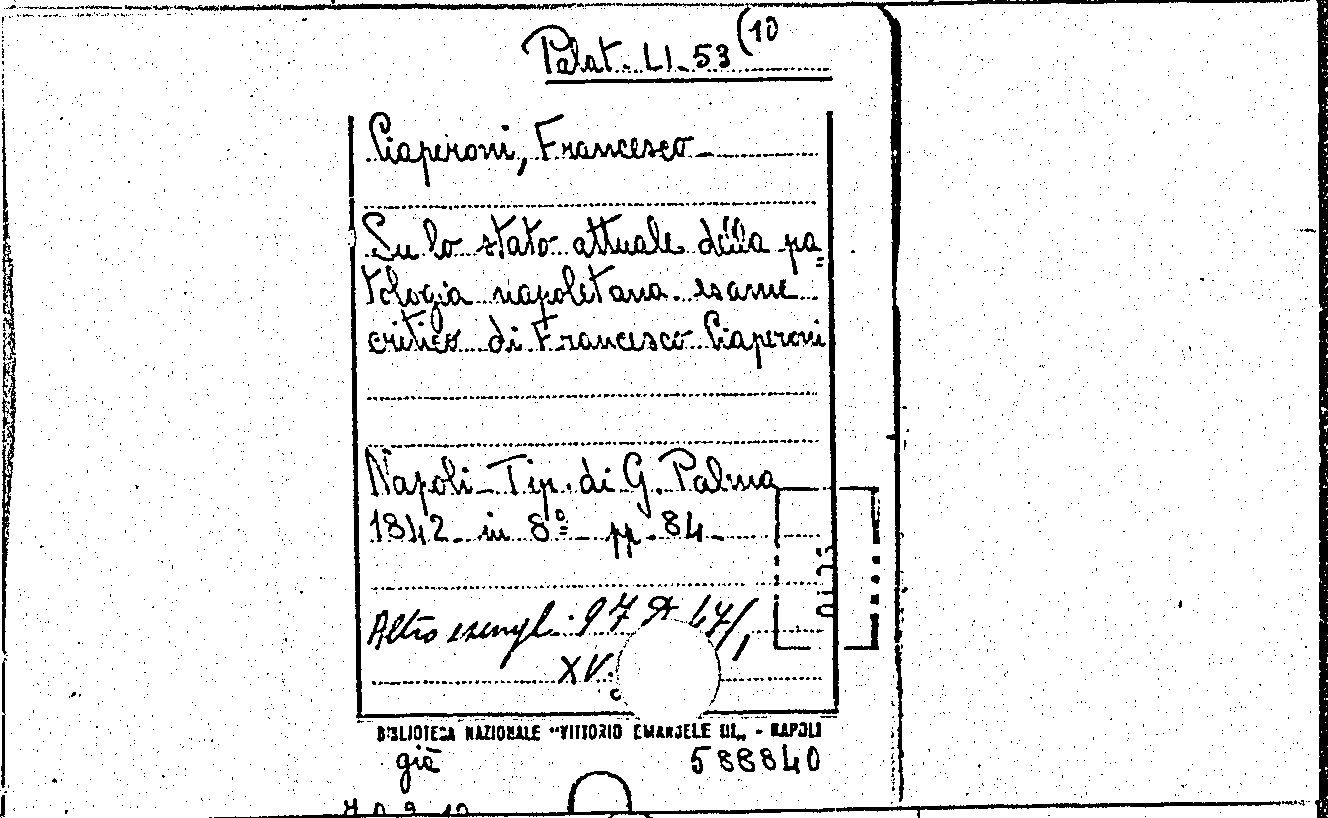 Palat. LI. 53 (10
Ciaperoni, Francesco
Su lo stato attuale della pa=
tologia napoletana esame
critico di Francesco Ciaperoni
Napoli - Tip. di G. Palma
1842 - in 8º - pp. 84 -
Altro esempl.
XV.
BIBLIOTECA NAZIONALE "VITTORIO EMANUELE III„ - NAPOLI
già 588840